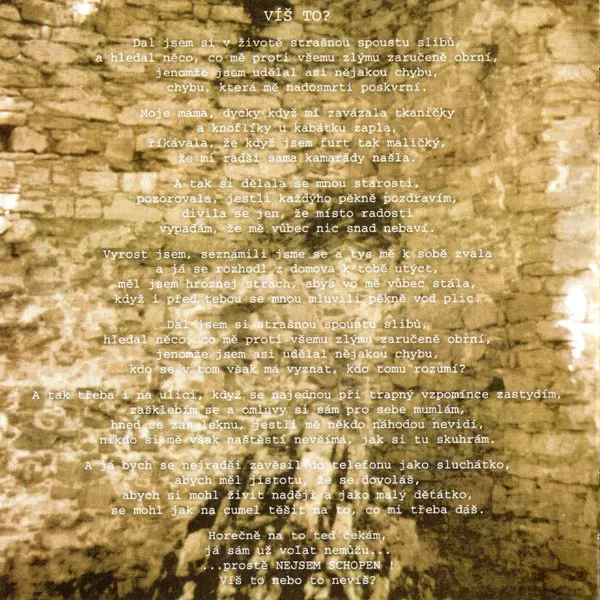 VÍŠ TO?
Dal jsem si v životě strašnou spoustu slibů,
a hledal něco, co mě proti všemu zlýmu zaručeně obrní,
jenomže jsem udělal asi nějakou chybu,
chybu, která mě nadosmrti poskvrní.
Moje máma, dycky když mi zavázala tkaničky
a knoflíky u kabátku zapla,
říkávala, že když jsem furt tak maličký,
že mi radši sama kamarády našla.
A tak si dělala se mnou starosti,
pozorovala, jestli každýho pěkně pozdravím,
divila se jen, že místo radosti
vypadám, že mě vůbec nic snad nebaví.
Vyrost jsem, seznámili jsme se a tys mě k sobě zvala
a já se rozhodl z domova k tobě utýct,
měl jsem hroznej strach, abys vo mě vůbec stála,
když i před tebou se mnou mluvili pěkně vod plic.
Dal jsem si strašnou spoustu slibů,
hledal něco, co mě proti všemu zlýmu zaručeně obrní,
jenomže jsem asi udělal nějakou chybu,
kdo se v tom však má vyznat, kdo tomu rozumí?
A tak třeba i na ulici, když se najednou při trapný vzpomínce zastydím,
zašklebím se a omluvy si sám pro sebe mumlám,
hned se zas leknu, jestli mě někdo náhodou nevidí,
nikdo si mě však naštěstí nevšímá, jak si tu skuhrám.
A já bych se nejradši zavěsil do telefonu jako sluchátko,
abych měl jistotu, že se dovoláš,
abych si mohl živit naději a jako malý děťátko,
se mohl jak na cumel těšit na to, co mi třeba dáš.
Horečně na to teď čekám,
já sám už volat nemůžu...
...prostě NEJSEM SCHOPEN !
Víš to nebo to nevíš?